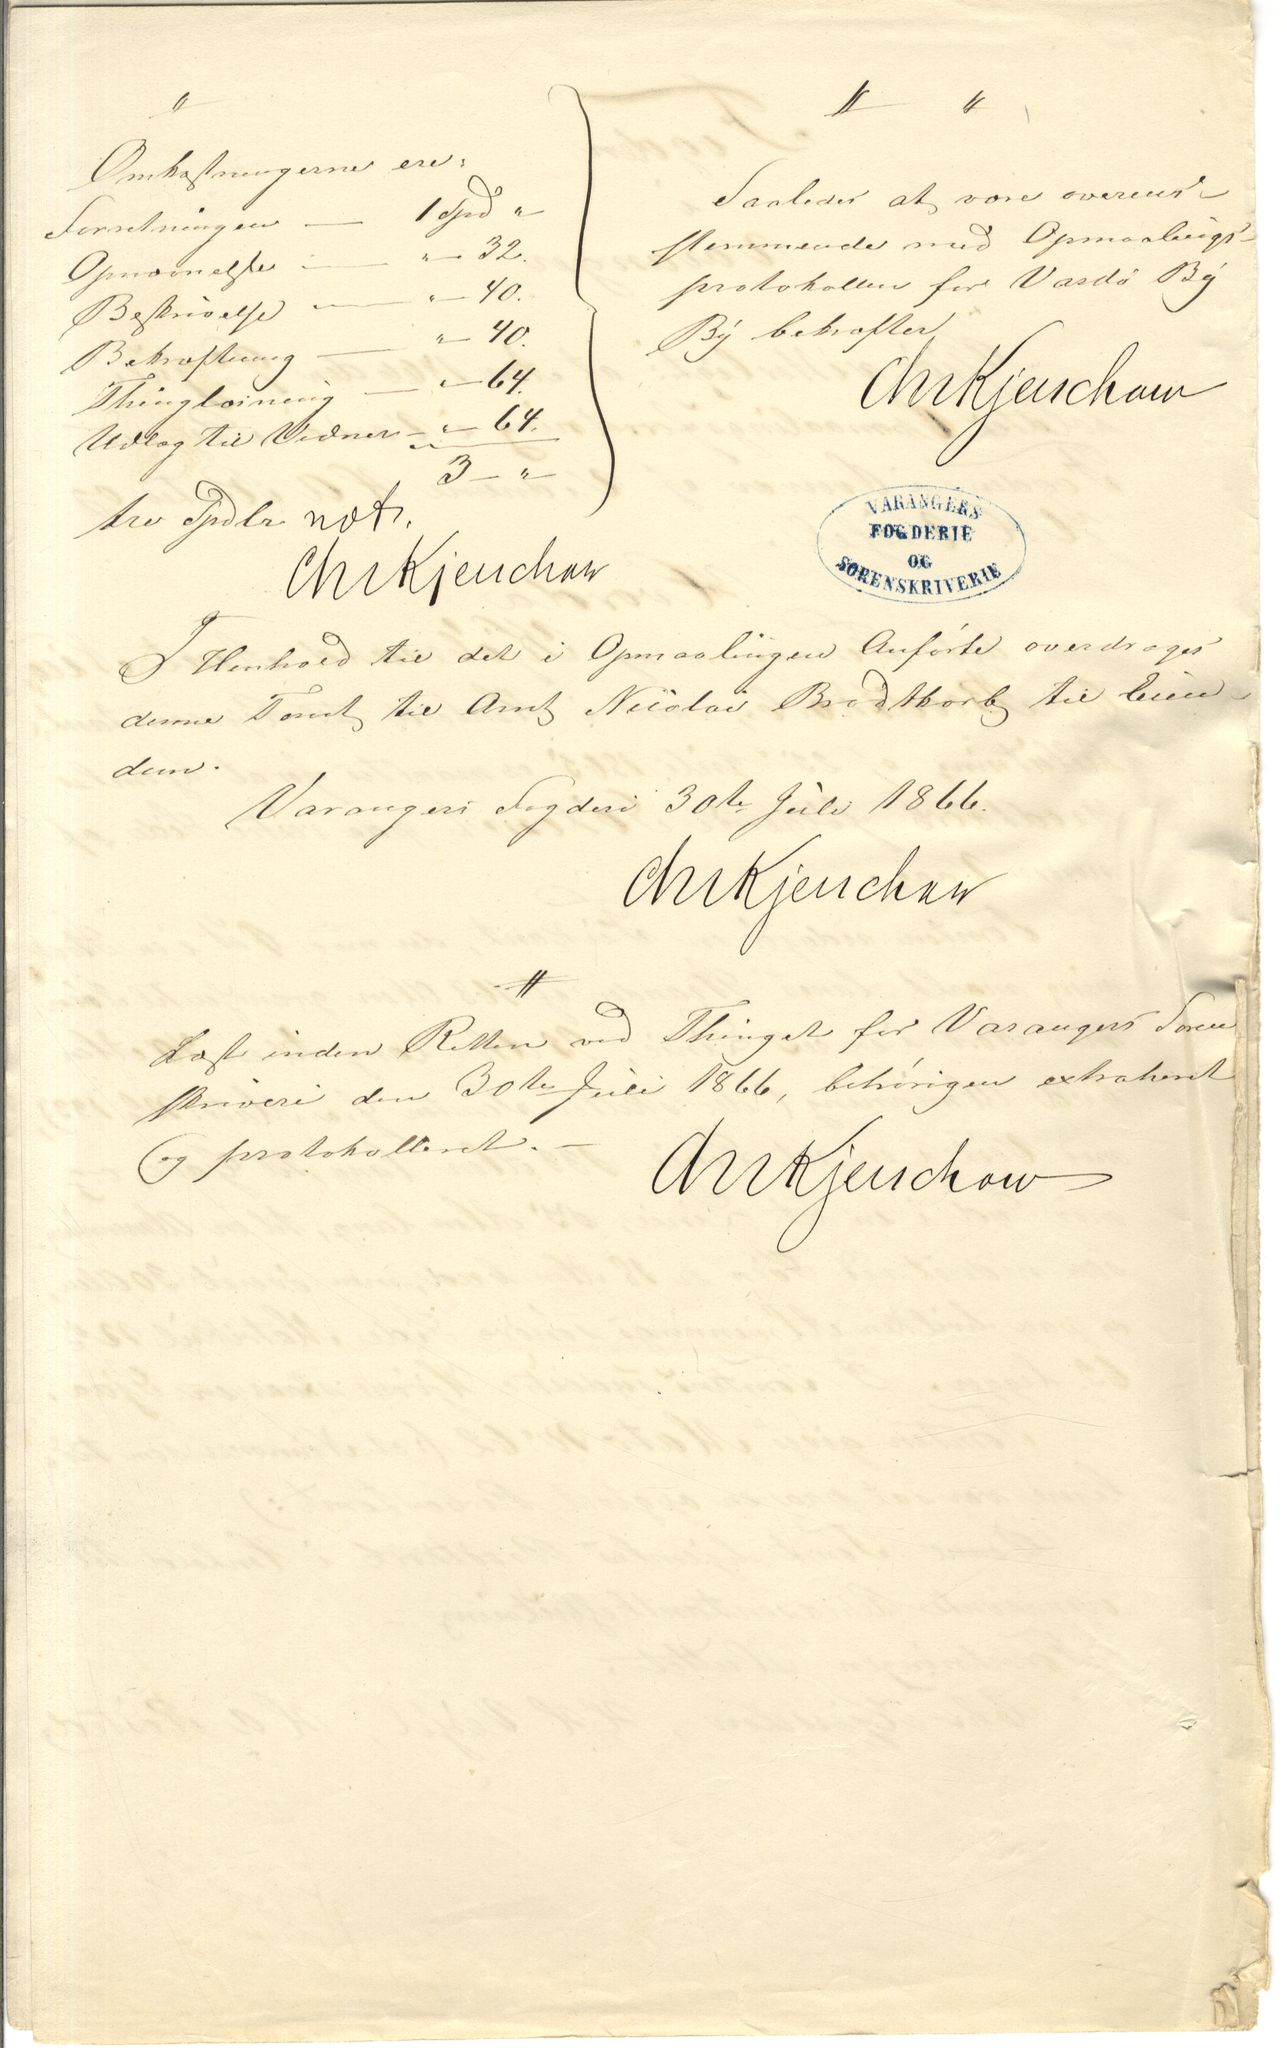 Omkostningerne ere:
Forretningen — 1 Spd "
Opnævnelse — " — 32.
Beskrivelse — " — 40.
Bekræftning — " — 40.
Thinglæsning — " — 64.
Udlæg til Vidner — " — 64.
3 — " —
tre Spdlr not.
Chr Kjerschow
Saaledes at være overens-
stemmende med Opmaalings-
protokollen for Vardö By
By bekræfter
Chr Kjerschow
VARANGERS
FOGDERIE
OG
SORENSKRIVERIE
I Henhold til det i Opmaalingen Anförte overdrages
denne Tomt til Arnt Nicolai Brodtkorb til Eien-
dom.
Varangers Fogderi 30te Juli 1866.
Chr Kjerschow
Læst inden Retten ved Thinget for Varangers Soren
skriveri den 30te Juli 1866, behörigen extraheret
og protokolleret. —
Chr Kjerschow